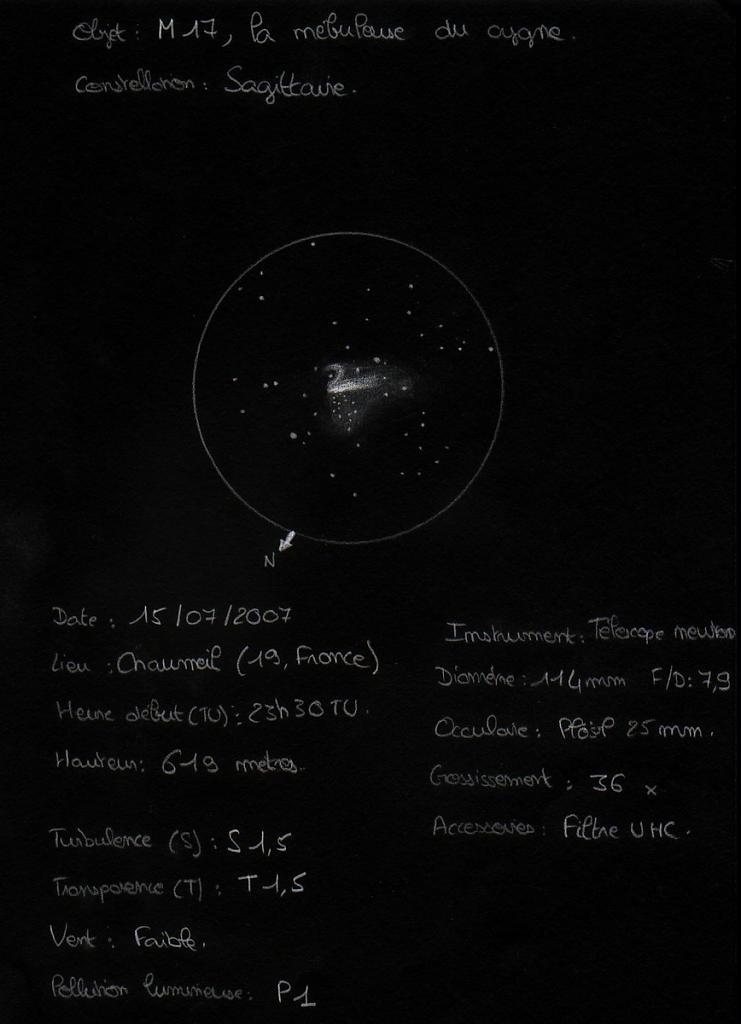 Objet : M 17, la nébuleuse du cygne.
Constellation : Sagittaire.
N
Date : 15/07/2007
Lieu : Chaumeil (19, France)
Heure début (TU) : 23h30 TU.
Hauteur : 619 metres.
Turbulence (S) : S 1,5
Transparence (T) : T 1,5
Vent : Faible.
Pollution lumineuse : P1
Instrument : Télescope newton
Diamètre : 114mm F/D : 7,9
Occulaire : Plösl 25 mm.
Grossissement : 36 x
Accessoires : Filtre UHC.